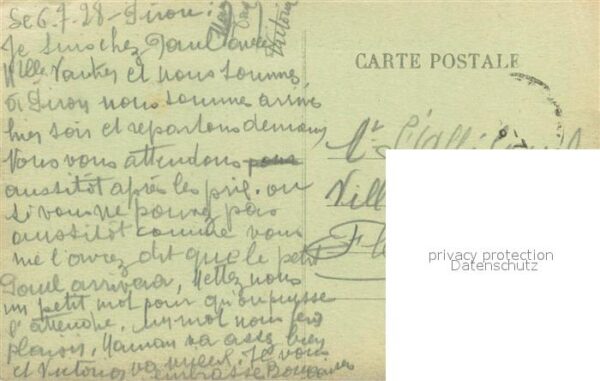 Le 6-7-28 - Dison :
Je suis chez Paul avec
Mlle et nous sommes
à Dison nous sommes arrivés
hier soir et repartons demain
Nous vous attendons
aussitôt après les prix. ou
si vous ne pouvez pas
aussitôt comme vous
me l'avez dit que le petit
Paul arrivera, Mettez nous
un petit mot pour qu'on puisse
l'attendre. un mot nous fera
plaisir, Maman va assez bien
et Victoria va mieux. Je vous
embrasse
Victoria
CARTE POSTALE
Mr
Ville
privacy protection
Datenschutz